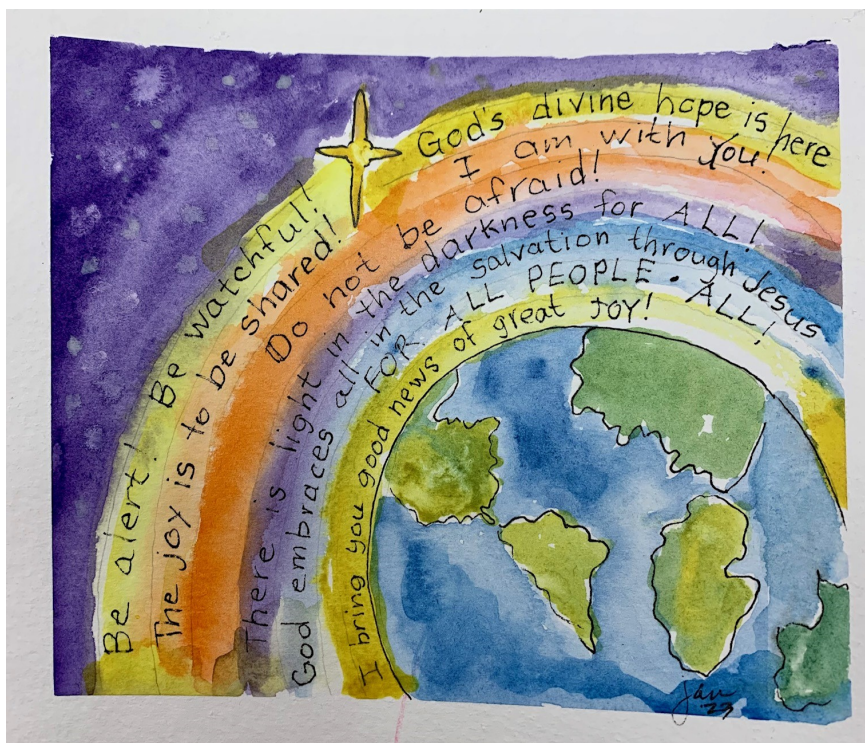 Be alert! Be watchful! God's divine hope is here
The joy is to be shared! I am with You!
Do not be afraid!
There is light in the darkness for ALL!
God embraces all in the salvation through Jesus
FOR ALL PEOPLE. ALL!
I bring you good news of great JOY!
jan
'23